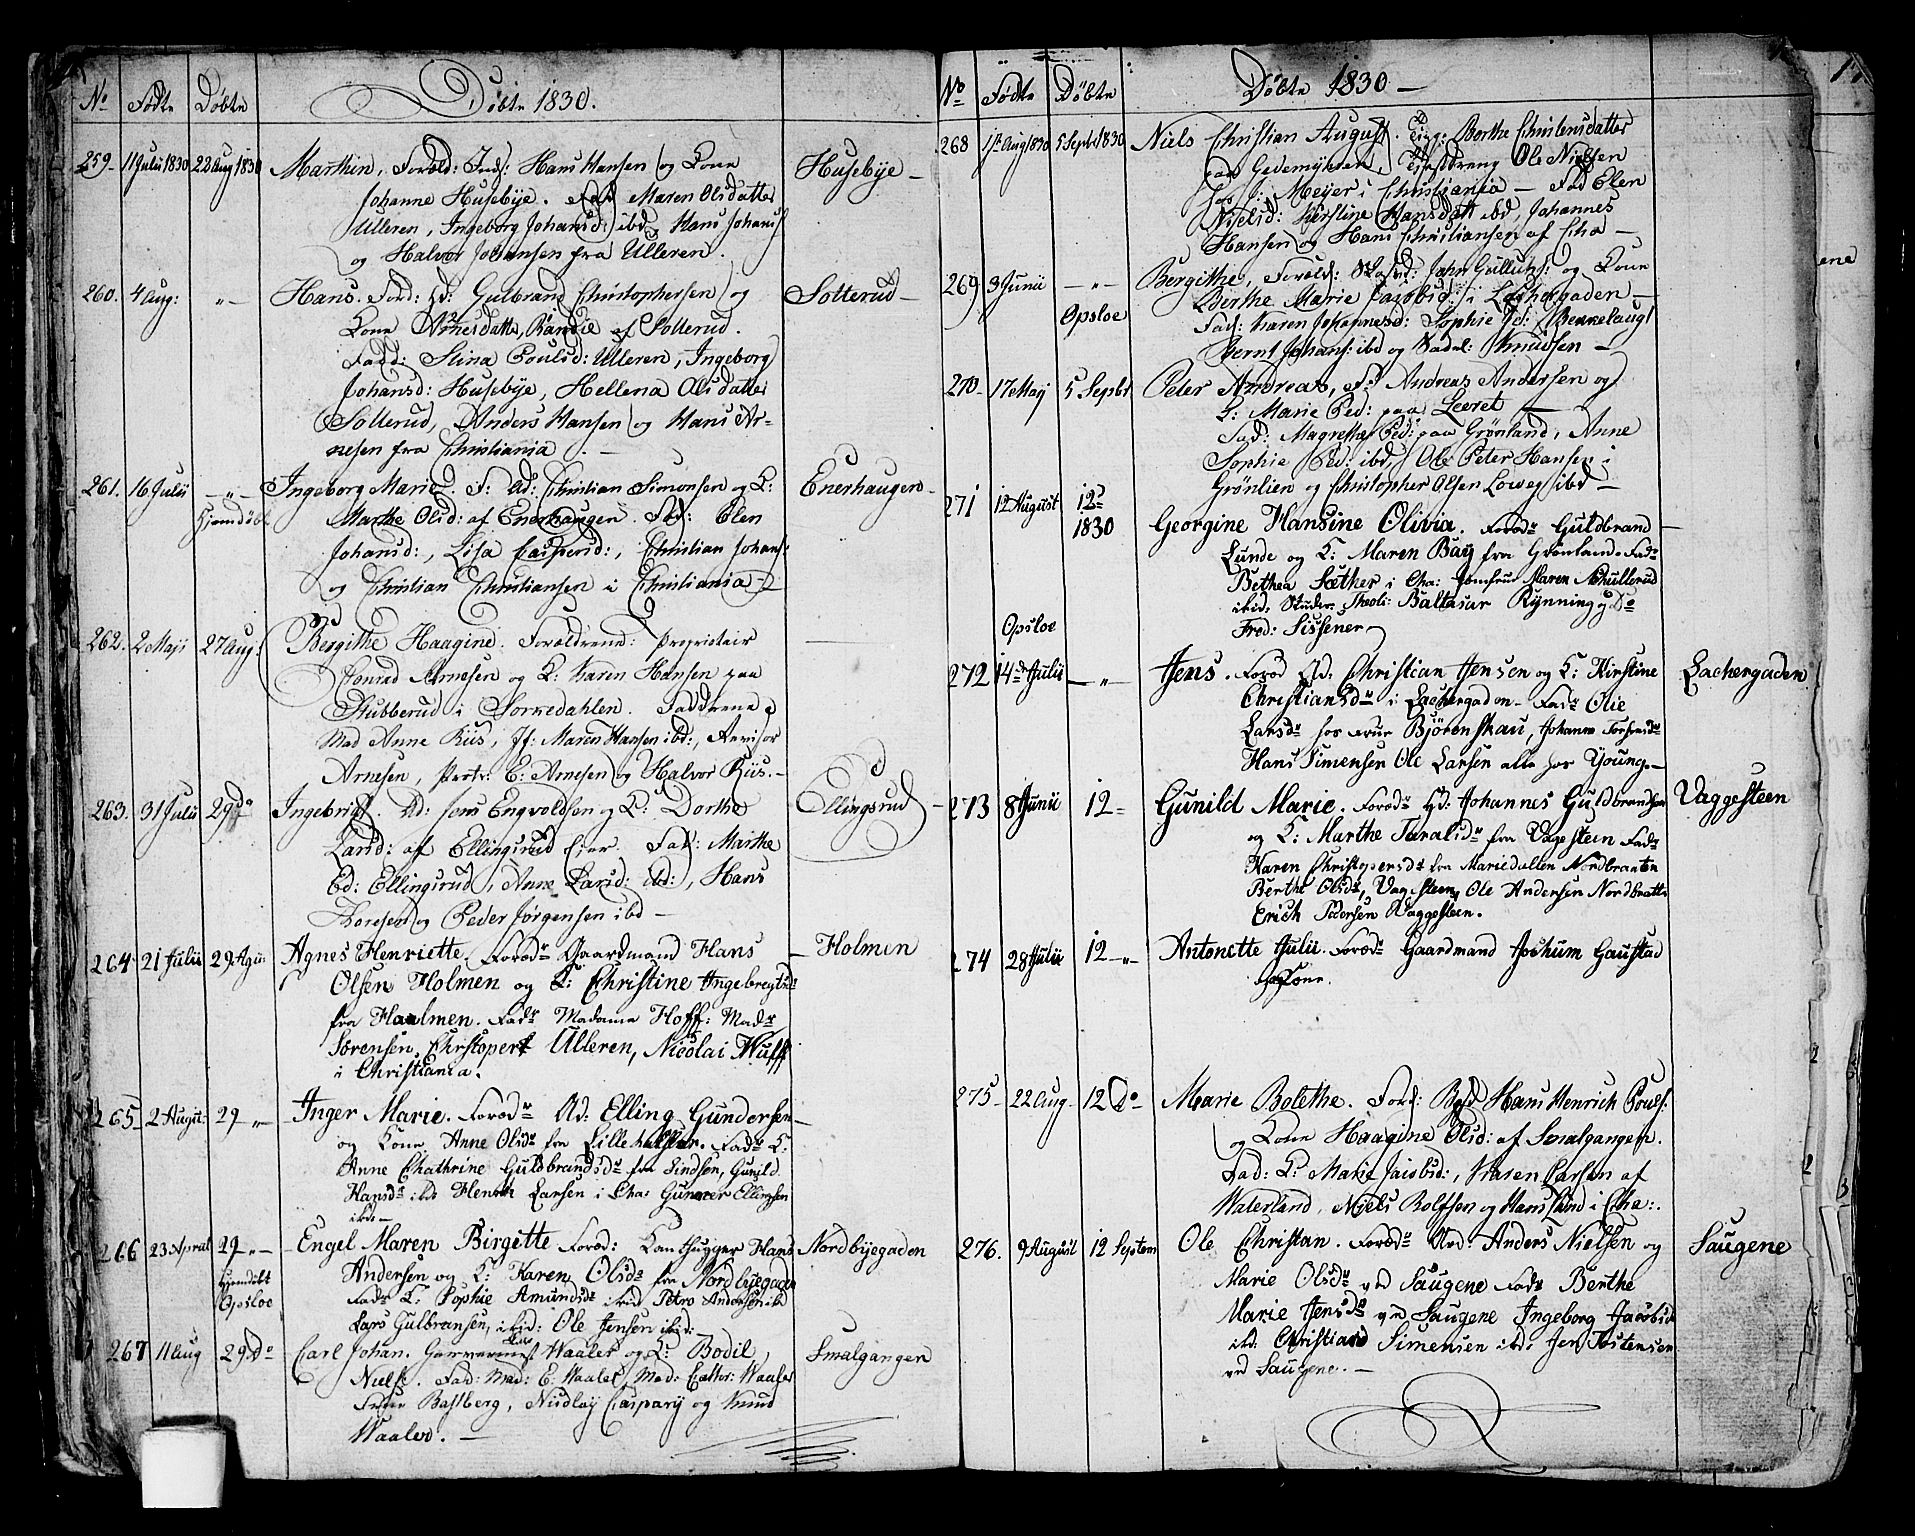 No Fødte Døbte Døbte 1830.
259. 11 Julii 1830 22 Aug 1830 Marthin, Foræld: Ind: Hans Hansen og Kone Husebye
Johanne Husebye. Fad Maren Olsdatter
Ulleren, Ingeborg Johansd: ibd, Hans Johans
og Halvor Johansen fra Ulleren.
260. 4 Aug: -"- Hans. For: Hd: Gulbrand Christophersen og Sotterud
Kone Arnesdatter Randie af Sollerud.
Fadd: Stina Poulsd: Ulleren, Ingeborg
Johansd: Husebye, Hellena Olsdatter
Sollerud, Anders Hansen og Hans Ar-
nesen fra Christiania.
261. 16 Julii -"- Ingeborg Marie. F: Ad: Christian Simonsen og K: Enerhaugen
Hjemdøbt Marthe Olsd: af Enerhaugen. Fad: Elen
Johansd:, Lisa Caspersd:, Christian Johans:
og Christian Christiansen i Christiania
262. 2 Maji 27 Aug: Bergithe Haagine. Forældrene: Proprietair
Conrad Arnesen og K: Karen Hansen paa
Stubberud i Sørkedahlen. Faddrene
Mad Anne Riis, Jf: Maren Hansen ibd:, Revisor
Arnesen, Pertr: E: Arnesen og Halvor Riis.
263. 31 Julii 29 do Ingebrigt. Ad: Jens Engvoldsen og K: Dorthe Ellingsrud
Larsd: af Ellingsrud Eier. Fad: Marthe
Ed: Ellingsrud, Anne Larsd: ibd:, Hans
Thoresen og Peder Jørgensen ibd
264 21 Julii 29 Agu Agnes Henriette. Foræd: Gaardmand Hans Holmen
Olsen Holmen og K: Christine Ingebregtsd:
fra Haalmen. Fad: Madame Hoff: Mad:
Sørensen, Christopert Ulleren, Nicolai Wulff
i Christiania.
265 2 August: 29 " Inger Marie. Foræd: Ad: Elling Gundersen
og Kone Anne Olsd: fra Lille
Anne Chathrine Guldbrandsd: fra Sindsen, Gunild
Hansd: ibd: Henrik Larsen i Cha: Gunner Ellingsen
ibd:
266 23 April 29 " Engel Maren Birgitte Foræd: Kamhugger Hans Nordbyegaden
Hjemdøbt Andersen og K: Karen Olsd: fra Nordbyegaden
Opsloe Fad: K: Sophie Amundsd: ibid Petro Andersen ibd
Lars Gulbransen, ibid: Ole Jensen ibid:
267 11 Aug 29 Do Carl Johan. Garversvend Waaler og K: Bodil Smalgangen
Niels. Fad: Mad: E: Waaler, Mad: Cathr: Waaler
Basberg, Nicolay Caspary og Knud
Waaler.
No Fødte Døbte Døbte 1830
268 1st Aug 1830 5 Septbr 1830 Niels Christian August. Pige: Berthe Christensdatter
paa Gedemyhren, Tjenestdreng Ole Nielsen
hos Meyer i Christiania Fad Elen
Nielsd: Kirstine Hansdatt ibd, Johannes
Hansen og Hans Christiansen af Cha
269 3 Junii -"- Bergithe, Foræld: John Gulluhs: og Kone
Opsloe Berthe Marie Jacobsd: i Lachergaden
Fad: Karen Johannesd: Sophie Jd: Bekkelauget
Bernt Johans: ibd og Sadel: Knudsen
270 17 May 5 Septbr Peter Andreas, F: Andreas Andersen og
K: Marie Ped: paa Leeret
Fad: Magrethe Ped: paa Grønland, Anne
Sophie Ped: ibd, Ole Peter Hansen i
Grønlien og Christopher Olsen Lowey ibd
271 12 August 12d Georgine Hansine Olivia. Foræd: Guldbrand
1830 Lunde og K: Maren Bay fra Grønland. Fad:
Bethea Sæther i Cha: Jomfrue Maren Schullerud
ibid, Studer. Theoli: Baltasar Rynning og Do
Opsloe Fred: Sissener
272 14d Julii -"- Jens. Foræd Ad. Christian Jensen og K: Kirstine Lachergaden
Christiansd: i Lachergaden. Fad: Olie
Larsd: hos Frue Bjørenskau, Johanne
Hans Simensen Ole Larsen alle hos Young.
273 8 Junii 12 Gunild Marie. Foræd: Hd: Johannes Guldbrandsen Vaggesteen
og K: Marthe Taralsd: fra Vagesteen Fad:
Karen Christopersd: fra Mariedallen Nordbraaten
Berthe Olsd:, Vagsteen, Ole Andersen Nordbratt:
Erich Pedersen Waggesteen.
274 28 Julii 12 " Antonette Julii. Foræd: Gaardmand Jochum Gaustad
og Kone.
275 22 Aug 12 Do Marie Bolethe. For: Hans Henrich Pouls:
og Kone Haagine Olsd: af Smalgangen.
Fad: K: Marie Jacobsd:, Karen Larsen af
Waterland, Niels Rolfsen og Hans Lund i Cha:.
276. 9 August 12 Septem Ole Christan. Foræd: Ad: Anders Nielsen og Saugene
Marie Olsd: ved Saugene Fad: Berthe
Marie Jensd: ved Saugene Ingeborg Jacobsd
ibd: Christian Simensen ibd: Jen Tostensen
ved Saugene.